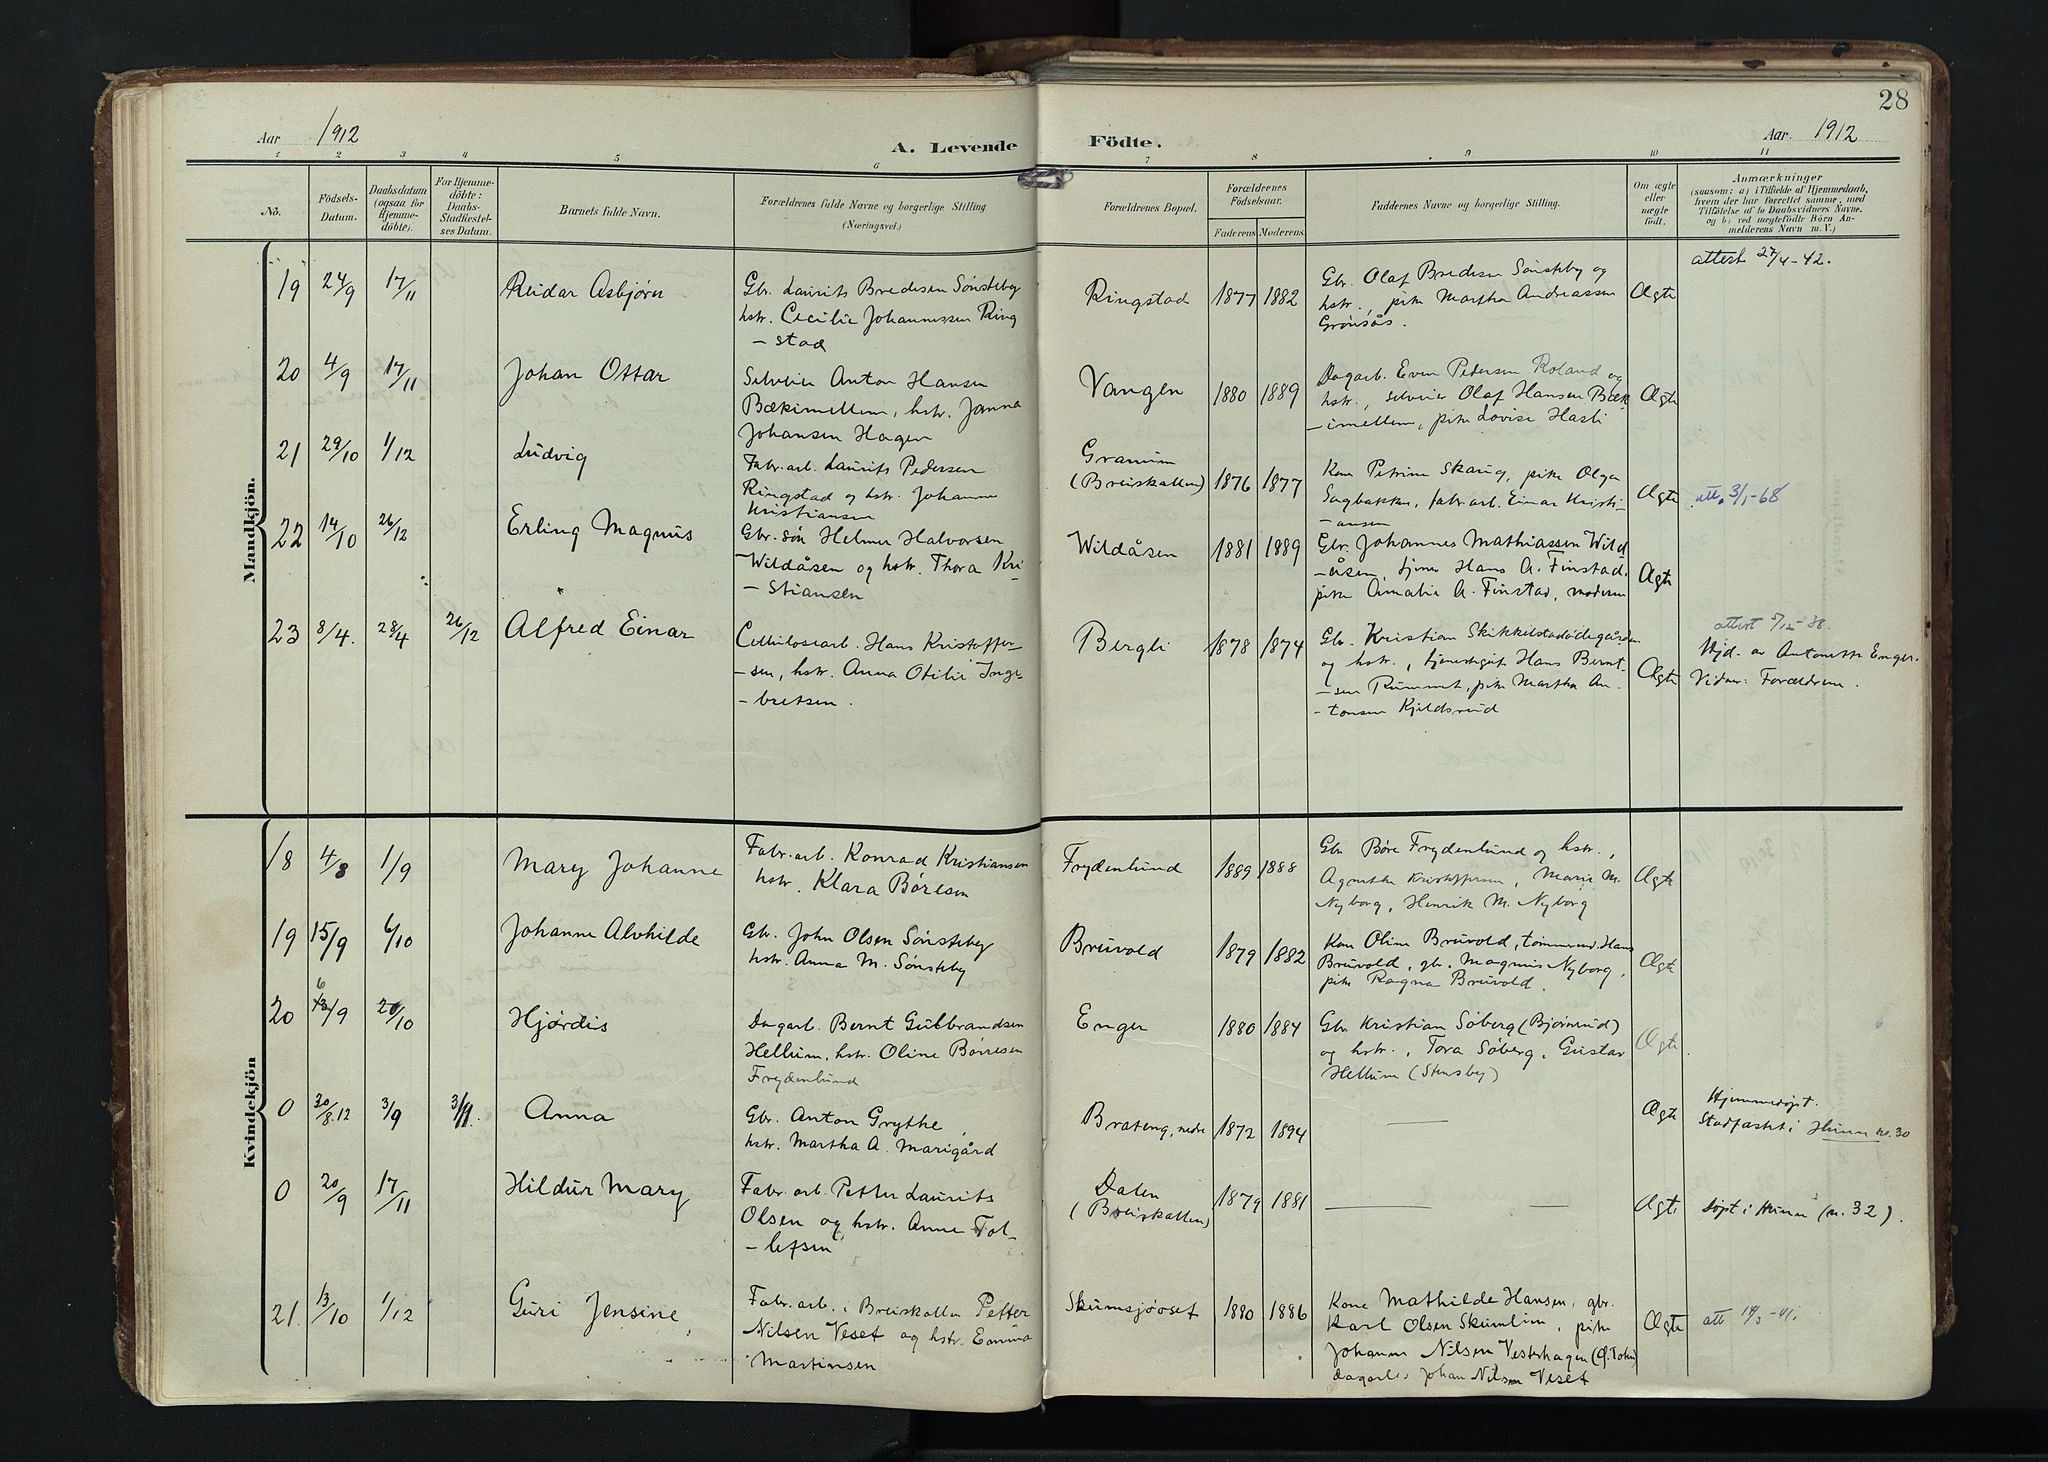 28
Aar 1912
A. Levende Födte.
Aar. 1912
1 2 3 4 5 6 7 8 9 10 11
No.
Födsels-
Datum.
Daabsdatum
(ogsaa for
Hjemme-
döbte).
For Hjemme-
döbte:
Daabs-
Stadfæstel-
ses Datum.
Barnets fulde Navn.
Forældrenes fulde Navne og borgerlige Stilling.
(Næringsvei.)
Forældrenes Bopæl.
Forældrenes
Födselsaar.
Faderens. Moderens.
Faddernes Navne og borgerlige Stilling.
Om ægte
eller
uægte
födt.
Anmærkninger
(saasom: a) i Tilfælde af Hjemmedaab,
hvem der har forrettet samme, med
Tilföielse af to Daabsvidners Navne,
og b) ved uægtefödte Börn An-
melderens Navn m. V.)
Mandkjön.
19 24/9 17/11 Reidar Asbjørn
Gbr. Laurits Bredesen Sønsteby
hstr. Cecilie Johannessen Ring
-stad
Ringstad 1877 1882
Gbr. Olaf Bredesen Sønsteby og
hstr., pike Martha Andreassen
Grönsås.
Ægte
attest 27/4-42.
20 4/9 17/11 Johan Ottar
Selveier Anton Hansen
Bækimellem, hstr. Janna
Johansen Hagen
Vangen 1880 1889
Dagarb. Even Pedersen Roland og
hstr., selveier Olaf Hansen Bæk
-imellem, pike Lovise Hasli
Ægte
21 29/10 1/12 Ludvig
Fabr.arb. Laurits Pedersen
Ringstad og hstr. Johanne
Kristiansen
Granum
(Breiskallen) 1876 1877
Kone Petrine Skaug, pike Olga
Sagbakken, fabr.arb. Einar Kristi-
-ansen
Ægte
att. 3/1-68
22 14/10 26/12 Erling Magnus
Gbr. søn Helmer Halvorsen
-Wildåsen og hstr. Thora Kri
-stiansen
Wildåsen 1881 1889
Gbr. Johannes Mathiassen Wild
-åsen, tjener Hans A. Finstad,
pike Amalie A. Finstad, moderen
Ægte
23 8/4. 28/4 26/12 Alfred Einar
Cellulosearb. Hans Kristoffer-
-sen, hstr. Anna Otilie Inge-
-bretsen.
Bergli 1878 1874
Gbr. Kristian Skikkelstadødegården
og hstr., tjenestegut Hans Bernt-
-sen Rummet, pike Martha An-
-tonsen Kjeldsrud
Ægte
Hjd. av Antonette Enger.
Vidner: Forældrene.
Kvindekjön
18 4/8 1/9 Mary Johanne
Fabr.arb. Konrad Kristiansen
hstr. Klara Børesen
Frydenlund 1889 1888
Gbr Børe Frydenlund og hstr.,
Agnethe Kristoffersen, Marie M.
Nyborg, Henrik M. Nyborg
Ægte
19 15/9 6/10 Johanne Alvhilde
Gbr. John Olsen Sønsteby
hstr. Anna M. Sønsteby
Bruvold 1879 1882
Kone Oline Bruvold, tømmerm. Hans
Bruvold, gbr. Magnus Nyborg,
pike Ragna Bruvold.
Ægte
20 6/9 20/10 Hjørdis
Dagarb. Bernt Gulbrandsen
Hellum, hstr. Oline Børresen
Frydenlund
Enger 1880 1884
Gbr Kristian Søberg (Bjørnerud)
og hstr., Tora Søberg, Gustav
Hellum (Stensby)
Ægte
0 30/8.12 3/9 3/11. Anna
Gbr. Anton Grythe,
hstr. Martha A. Marigård
Brateng, nedre 1872 1894
Ægte
Hjemmedøpt.
Stadfæstet i Hunn no. 30
0 20/9 17/11 Hildur Mary
Fabr.arb. Petter Laurits
Olsen og hstr. Anne Tol-
-lefsen
Dalen
(Breiskallen) 1879 1881
Ægte
Døpt i Hunn (n. 32).
21. 13/10 1/12 Guri Jensine
Fabr.arb. i Breiskallen Petter
Nilsen Veset og hstr. Emma
Martinsen
Skumsjøoset 1880 1886
Kone Mathilde Hansen, gbr.
Karl Olsen Skumlien, pike
Johanne Nilsen Vesterhagen (Ø. Toten)
dagarb. Johan Nilsen Veset
Ægte